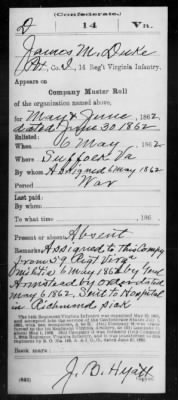 (Confederate.)
D 14 Va.
James M. Duke
Pt, Co. D, 14 Reg't Virginia Infantry.
Appears on
Company Muster Roll
of the organization named above,
for May & June, 1862.
dated June 30 1862
Enlisted:
When 6 May, 1862
Where Suffolk Va
By whom Assigned 6 May 1862
Period War
Last paid:
By whom
To what time , 186 .
Present or absent Absent
Remarks: Assigned to this Compy
from 59 Regt Virga
Militia 6 May 1862 by Genl
Armistead by order dated
May 6 1862, Sent to Hospital
in Richmond sick
Book mark:
(642)
J. D. Hyatt